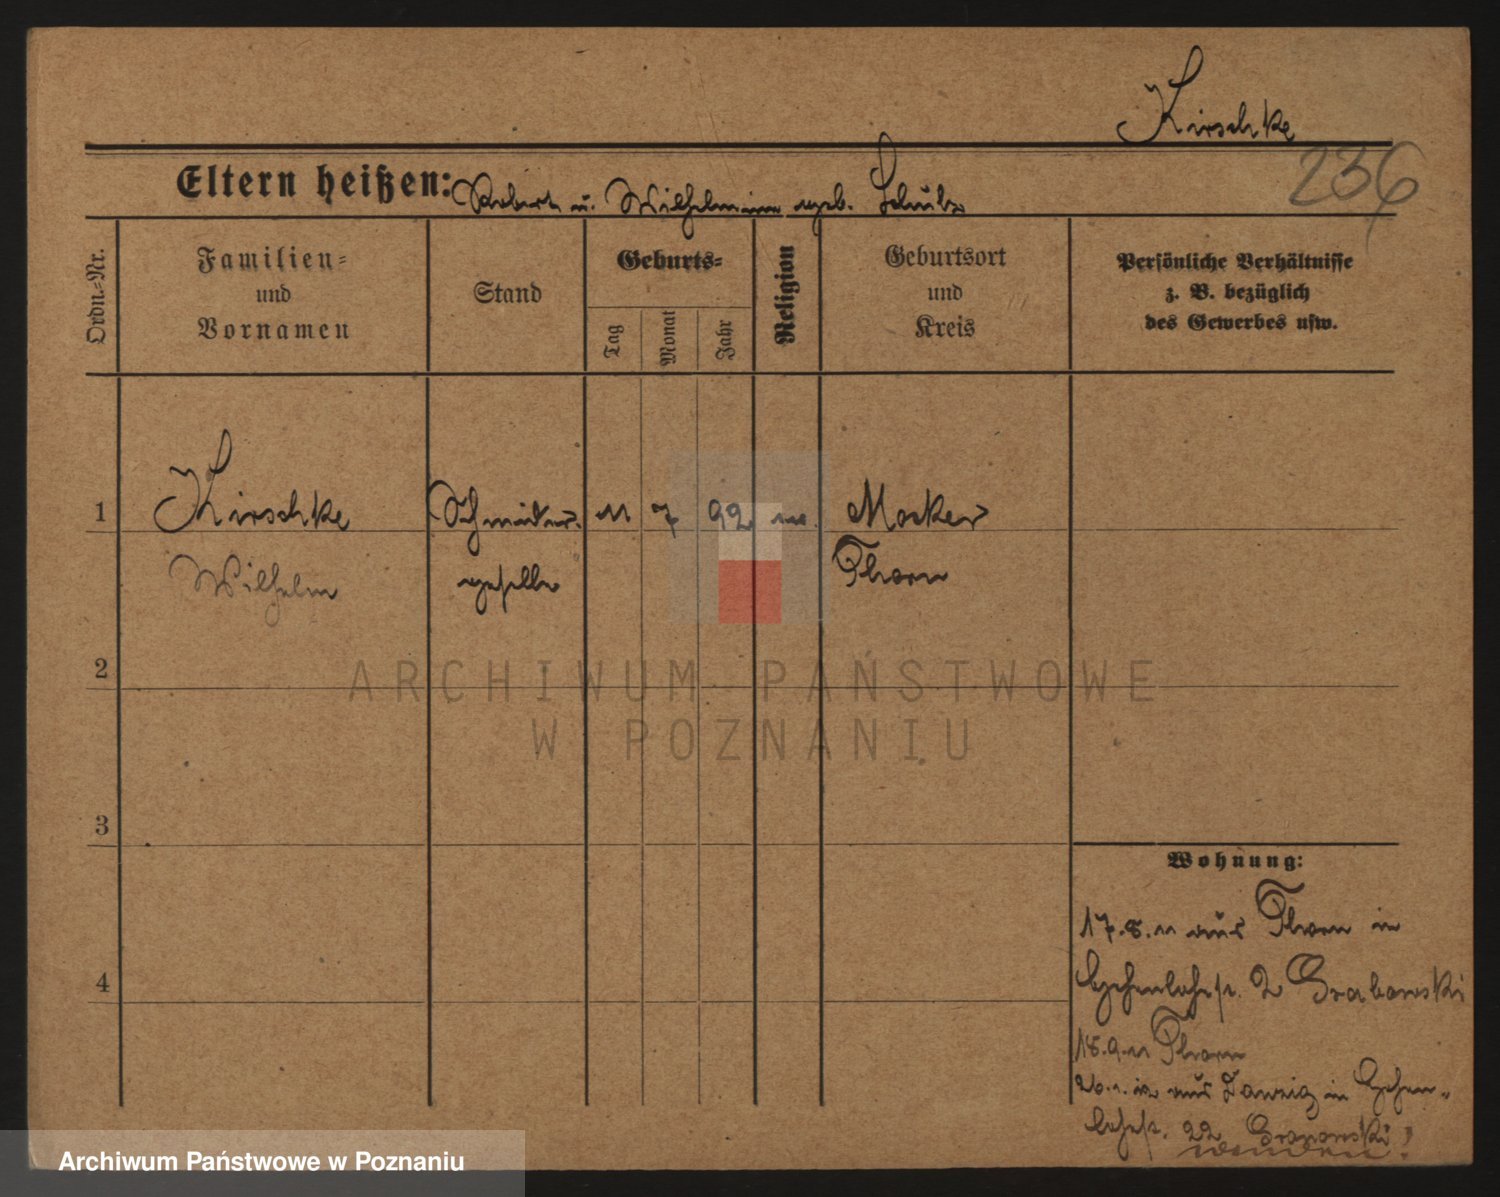 Kirschke
236
Eltern heißen: Robert u. Wilhelmine geb. Schulz
Ordn.-Nr.
Familien-
und
Vornamen
Stand
Geburts-
Tag
Monat
Jahr
Religion
Geburtsort
und
Kreis
Persönliche Verhältnisse
z. B. bezüglich
des Gewerbes usw.
1
Kirschke
Wilhelm
Schneider-
geselle
11
7
92
ev.
Mocker
Thorn
2
3
4
ARCHIWUM PAŃSTWOWE
W POZNANIU
Wohnung:
17.8.11 aus Thorn in
2 Grabowski
18.9.11 Thorn
aus Danzig in
22
wenden!
Archiwum Państwowe w Poznaniu